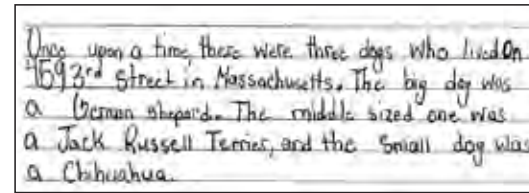 Once upon a time, there were three dogs who lived on
4593rd Street in Massachusetts. The big dog was
a German shepard. The middle sized one was
a Jack Russell Terrier, and the small dog was
a Chihuahua.